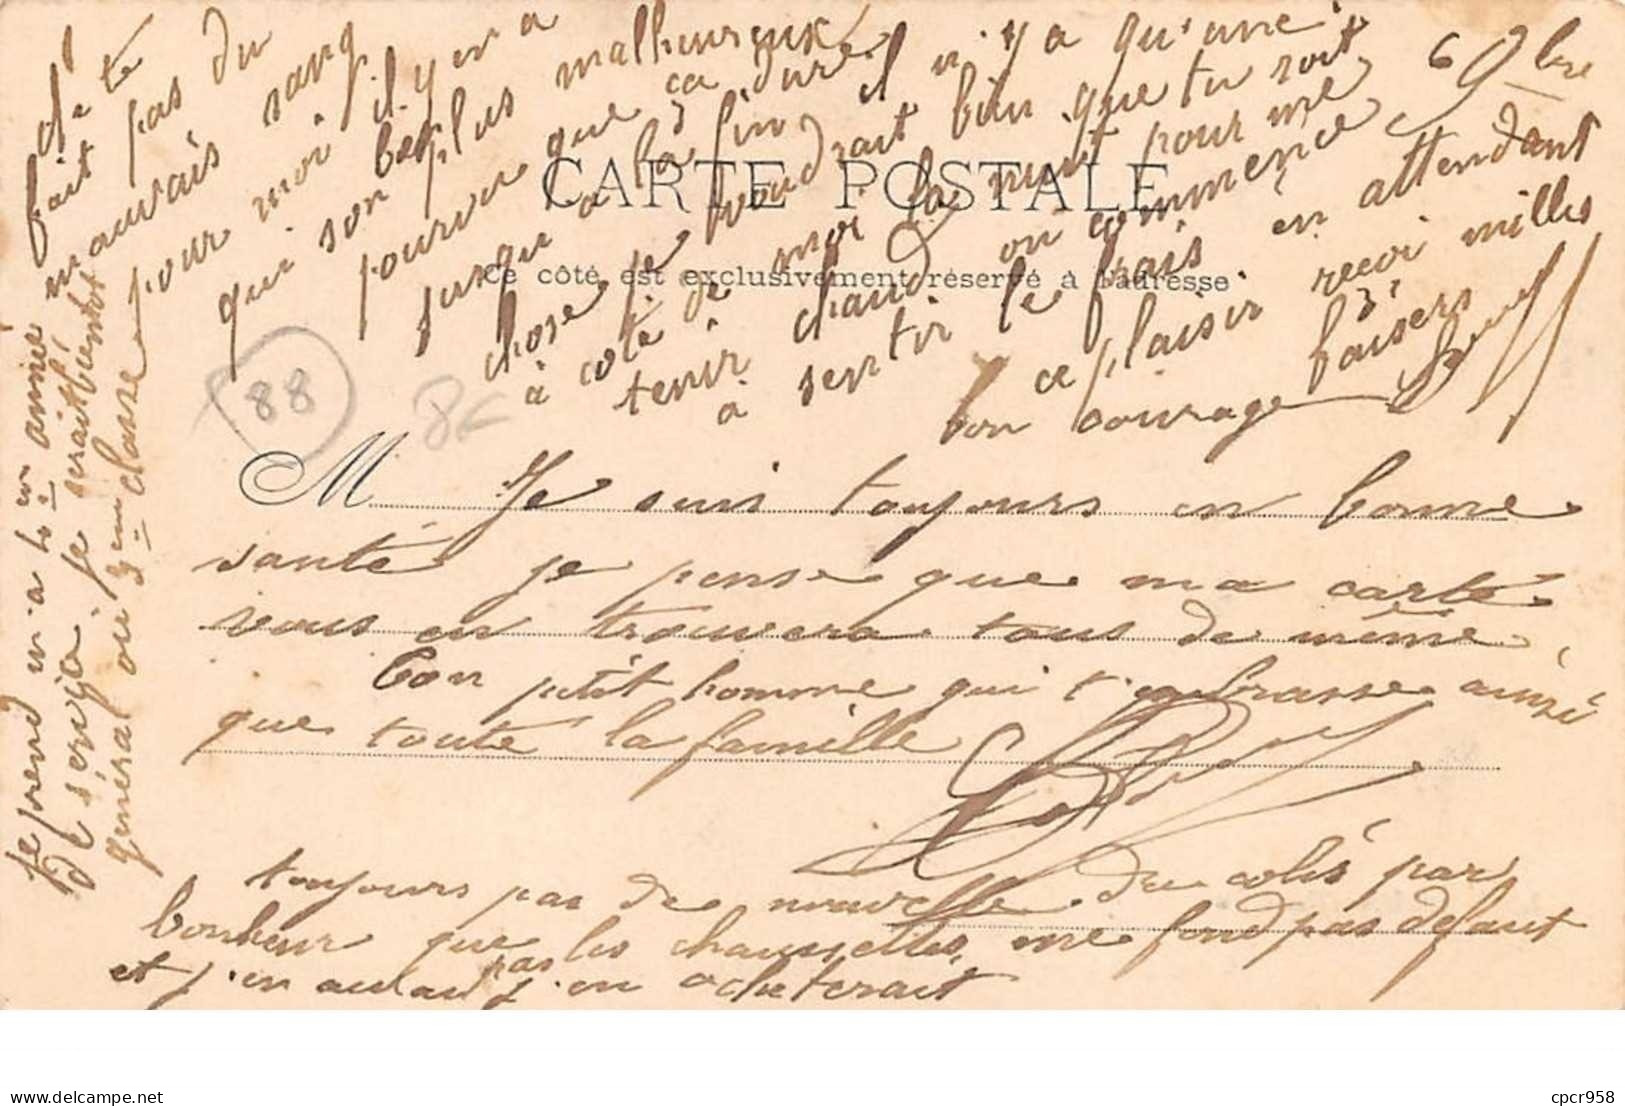 6 9bre
CARTE POSTALE
Ce côté est exclusivement réservé à l'adresse
88
8€
M Je suis toujours en bonne
santé je pense que ma carte
vous en trouvera tous de même
Ton petit homme qui t'embrasse ainsi
que toute la famille
toujours pas de nouvelle du colis par
bonheur que les chaussettes me fond pas defaut
et j'en pas j'en acheterait
je prend en a 4 en année
de service je serait bientot
général ou 3em classe
te
fait pas du
mauvais sang
pour moi il y en a
qui son plus malheureux
pourvu que ca dure
jusqu'a la fin il n'y a qu'une
chose je voudrait bien que tu soit
à coté de moi la nuit pour me
tenir chaud on commence
a sentir le frais en attendant
ce plaisir recoi milles
bon courage baisers
cpcr958
www.delcampe.net